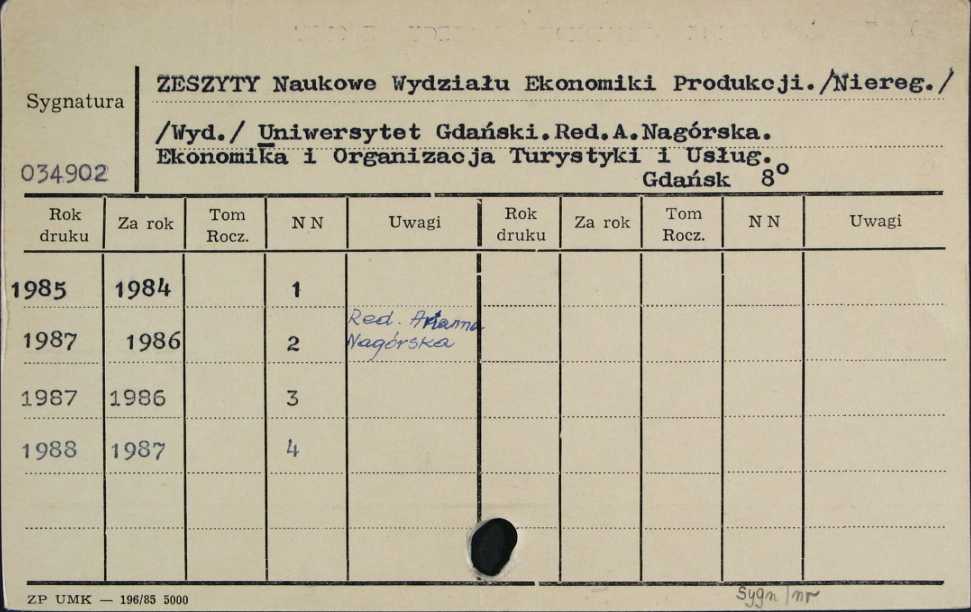 ZESZYTY Naukowe Wydziału Ekonomiki Produkcji./Niereg./
Sygnatura
/Wyd./ Uniwersytet Gdański.Red.A.Nagórska.
Ekonomika i Organizacja Turystyki i Usług.
034902
Gdańsk 8°
Rok druku Za rok Tom Rocz. N N Uwagi Rok druku Za rok Tom Rocz. N N Uwagi
1985 1984 1
1987 1986 2 Red. Nagórska
1987 1986 3
1988 1987 4
ZP UMK — 196/85 5000
Sygn/nr